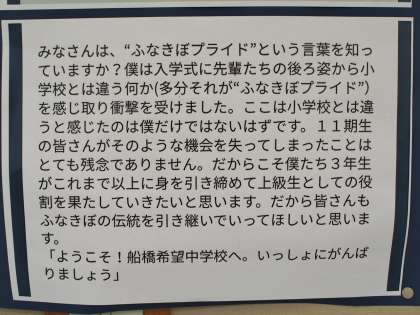 みなさんは、“ふなきぼプライド”という言葉を知っ
ていますか？僕は入学式に先輩たちの後ろ姿から小
学校とは違う何か(多分それが“ふなきぼプライド”)
を感じ取り衝撃を受けました。ここは小学校とは違
うと感じたのは僕だけではないはずです。１１期生
の皆さんがそのような機会を失ってしまったことは
とても残念でありません。だからこそ僕たち３年生
がこれまで以上に身を引き締めて上級生としての役
割を果たしていきたいと思います。だから皆さんも
ふなきぼの伝統を引き継いでいってほしいと思いま
す。
「ようこそ！船橋希望中学校へ。いっしょにがんば
りましょう」